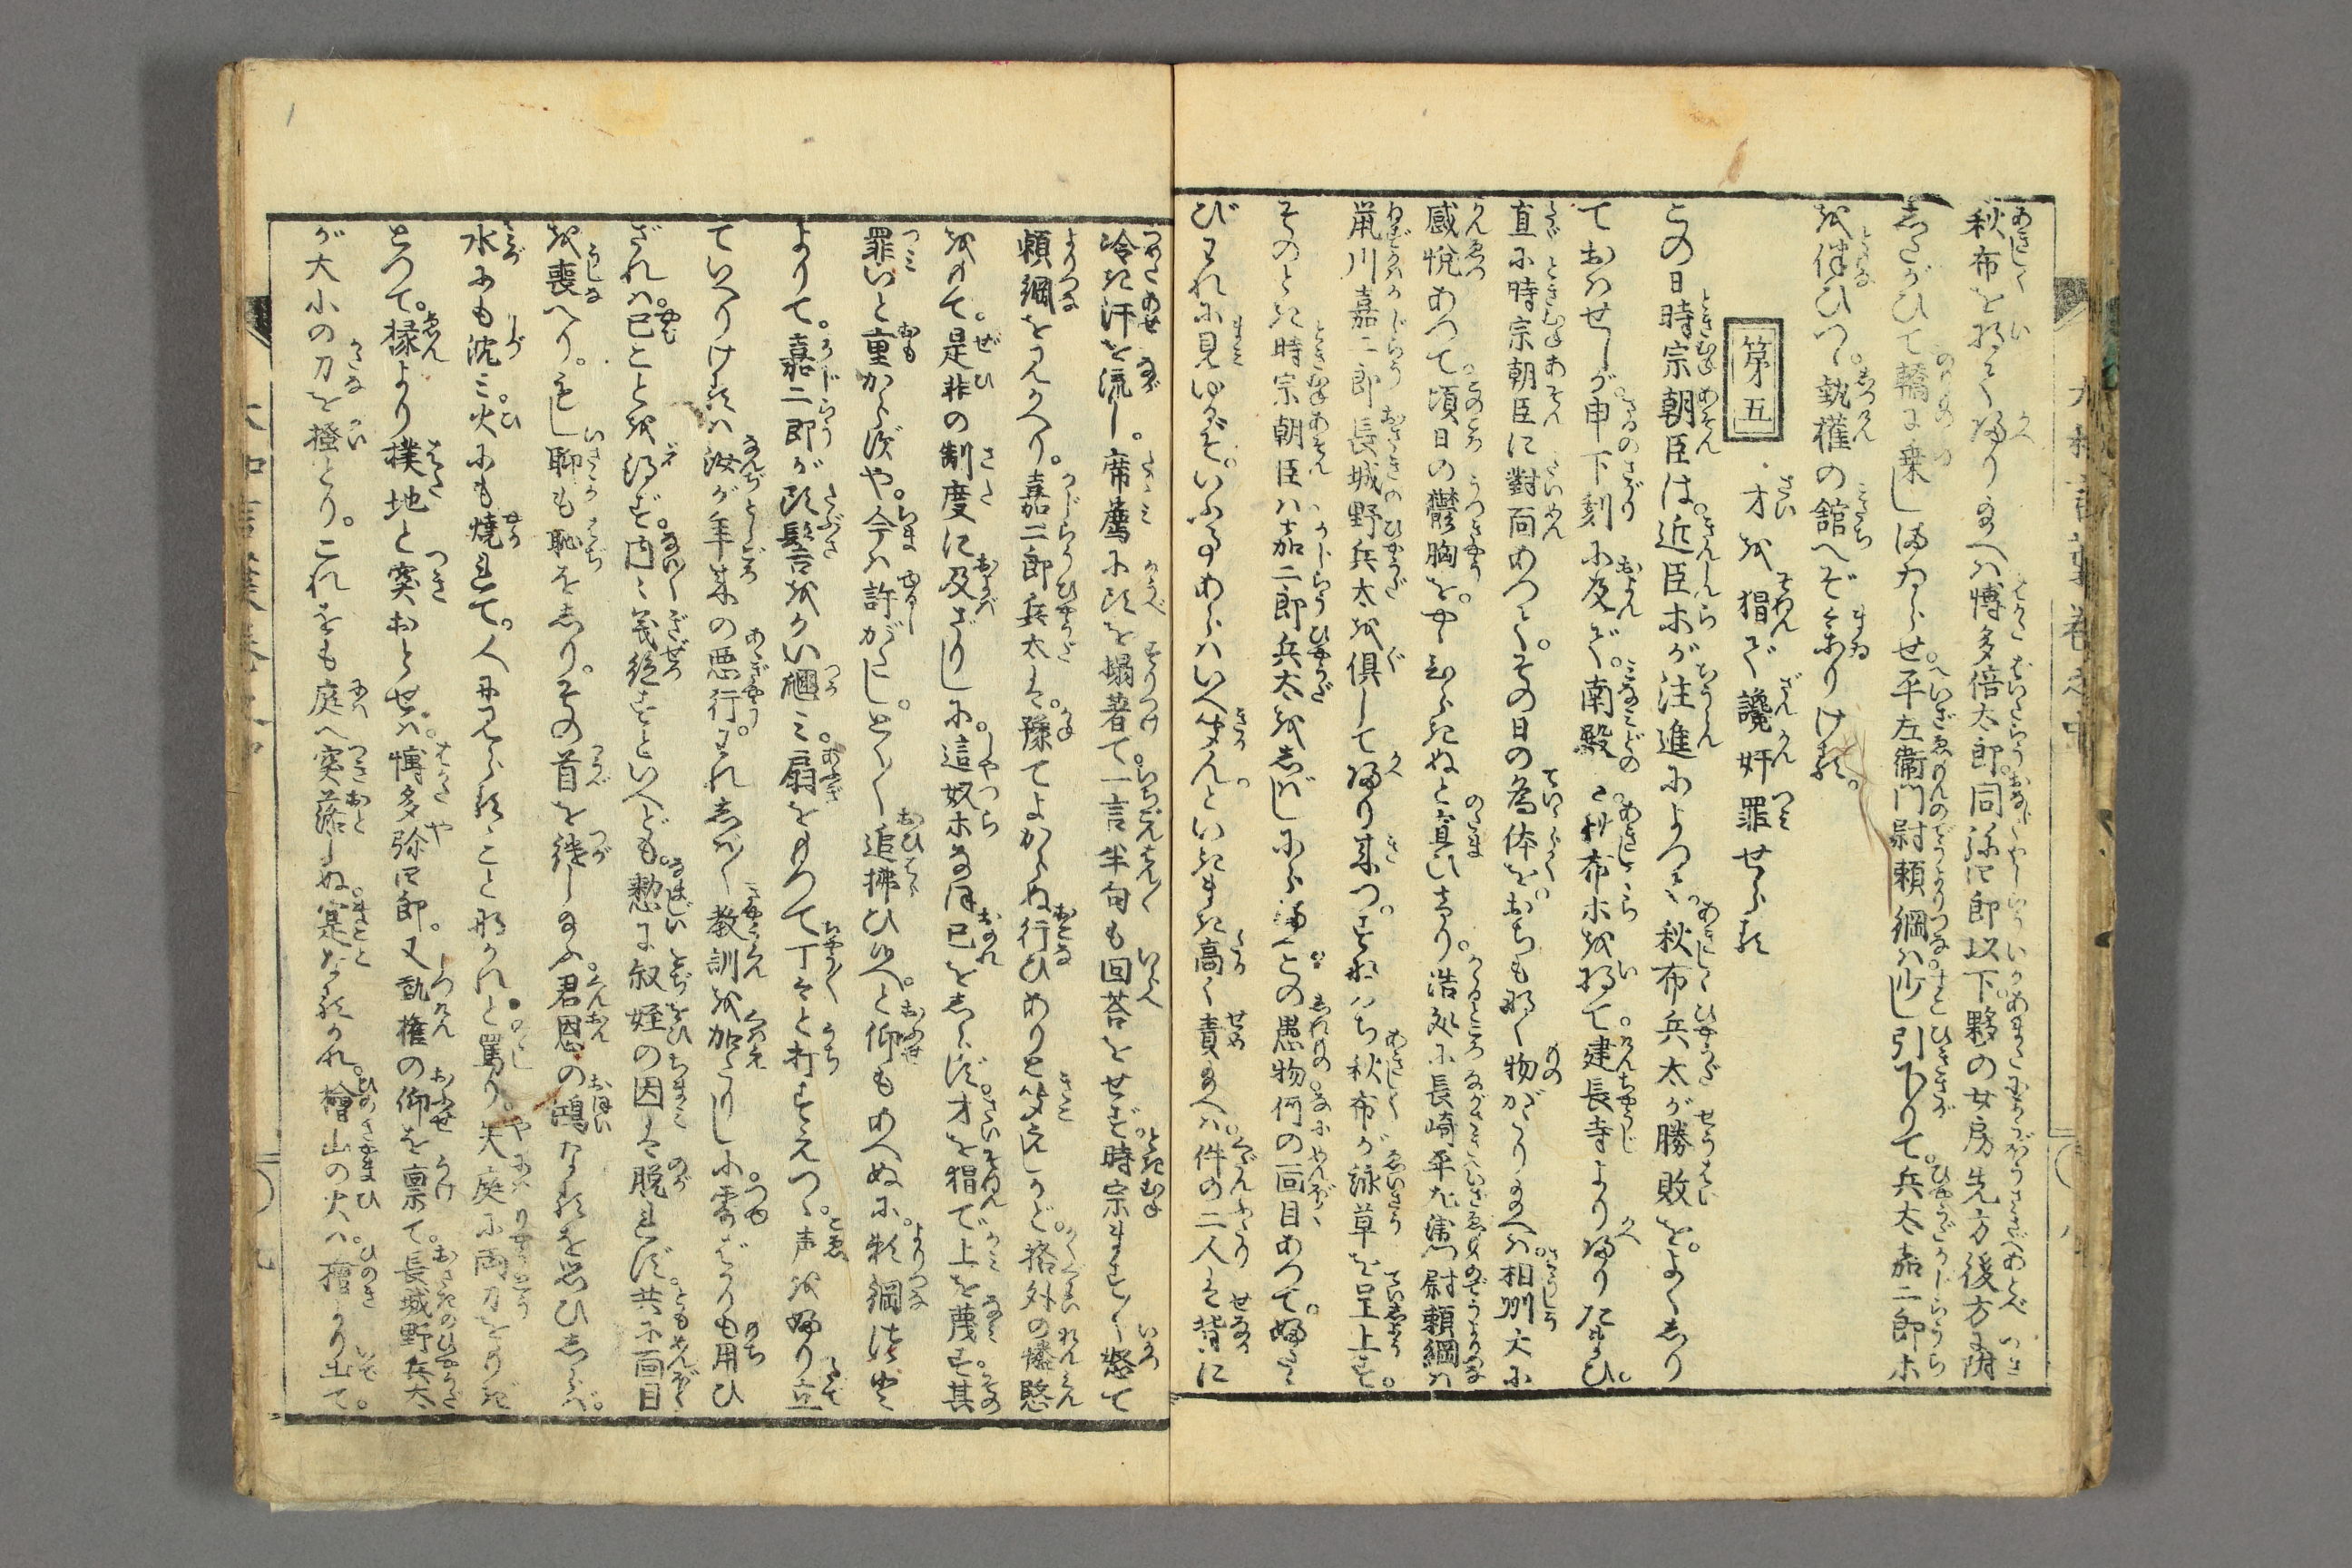 秋布を将て帰り給へバ博多倍太郎。同弥四郎以下。夥の女房先方後方に附
したがひて轎に乗しまゐらせ。平左衛門尉頼綱ハ少し引下りて。兵太嘉二郎ホ
を伴ひつゝ。執権の舘へぞ参りける。
第五
才を猖で讒奸罪せらる
この日時宗朝臣は。近臣ホが注進によつて。秋布兵太が勝敗を。よくしり
ておハせしが。申下刻に及で。南殿ハ。秋布ホを将て。建長寺より帰り給ひ。
直に時宗朝臣に對面あつて。その日の為体を。おちも那く物がたり給へバ。相州大に
感悦あつて。頃日の欝胸を。やゝひらきぬと宣ひけり。浩処に長崎平左衛門尉頼綱ハ
鼡川嘉二郎長城野兵太を倶して帰り来つ。すなハち秋布が詠草を呈上す。
そのとき時宗朝臣ハ嘉二郎兵太をしばしにらまへ。この愚物何の面目あつて。帰さ
びわれに見ゆるぞ。いふ事あらバいへ聞んといきまき高く責給へバ。件の二人は背に
冷き汗を流し。席薦に頭を搨著て。一言半句も回荅をせず。時宗ます／＼怒て
頼綱を見かへり。嘉二郎兵太は。豫てよからぬ行ひありと聞えしかど。格外の憐愍
をもて。是非の制度に及ざりしに。這奴ホなほ己をしらず。才を猖で上を蔑す。其
罪いと重からずや。今ハ許がたし。とく／＼追拂ひ候へと仰もあへぬに。頼綱つと
よりて。嘉二郎が頭髻をかい爴ミ。扇をもつて丁々と打すえつゝ。声をふり立
ていへりけるハ汝が年来の悪行。われしば／＼教訓を加えしに。露ばかりも用ひ
ざれバ。已ことを得ず。内々義絶すといへども。憖に叔姪の因は脱れず。共に面目
を喪へり。もし聊も恥をしり。その首を續し給ふ。君恩の鴻なるを思ひしらバ。
水にも沈ミ。火にも焼れて。人に見らるゝこと那かれと罵り。矢庭に両刀をもぎ
とつて。椽より撲地と突おとせバ。博多弥四郎。又執権の仰を稟て。長城野兵太
が大小の刀を搔とり。これをも庭へ突落しぬ。寔なるかれ。檜山の火ハ。檜より出て。